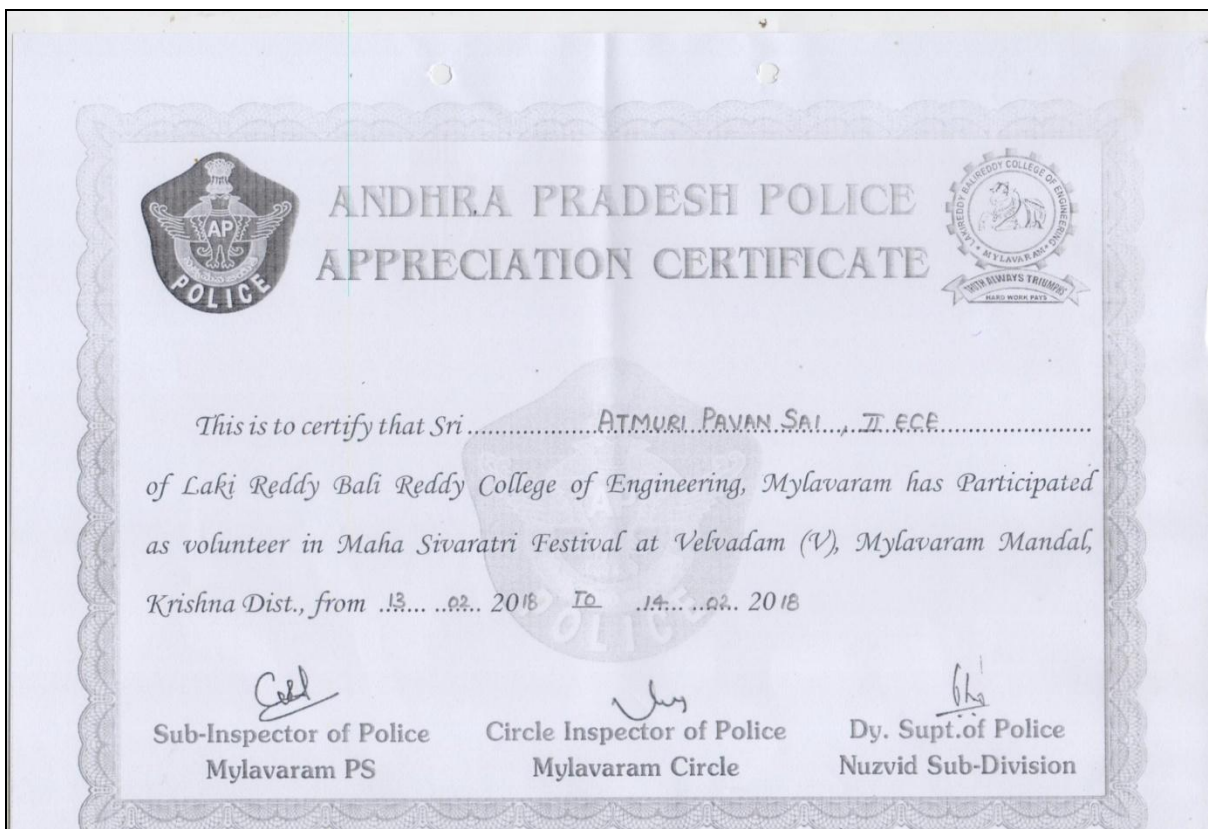 ANDHRA PRADESH POLICE
APPRECIATION CERTIFICATE
AP
POLICE
LAKIREDDY BALIREDDY COLLEGE OF ENGINEERING
* MYLAVARAM *
TRUTH ALWAYS TRIUMPHS
HARD WORK PAYS
This is to certify that Sri ................. ATMURI PAVAN SAI , II ECE .......................
of Laki Reddy Bali Reddy College of Engineering, Mylavaram has Participated
as volunteer in Maha Sivaratri Festival at Velvadam (V), Mylavaram Mandal,
Krishna Dist., from .13... ..02.. 2018 TO .14... ..02. 2018
Sub-Inspector of Police
Mylavaram PS
Circle Inspector of Police
Mylavaram Circle
Dy. Supt.of Police
Nuzvid Sub-Division